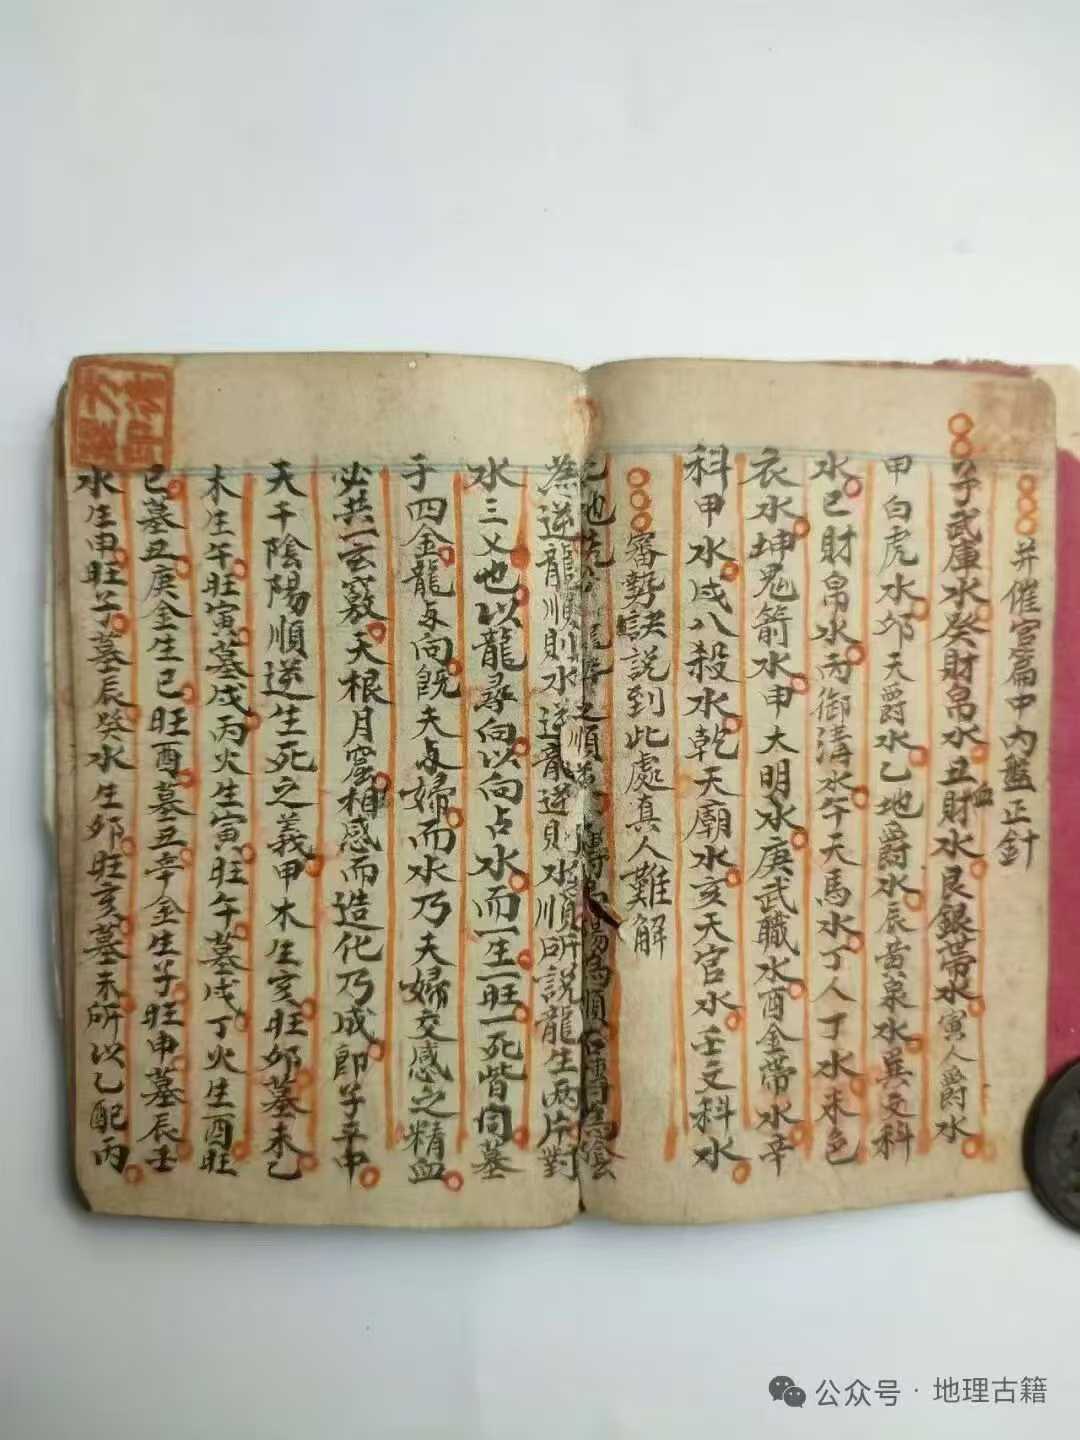 并催官扁中内盤正針
子武庫水癸財帛水丑財水艮銀帶水寅人爵水
甲白虎水夘天爵水乙地爵水辰黄泉水巽文科
水巳財帛水丙御溝水午天馬水丁人丁水未色
衣水坤鬼箭水申大明水庚武職水酉金帶水辛
科甲水戌八殺水乾天廟水亥天官水壬文科水
審勢訣説到此處真人難解
為逆龍順則水逆龍逆則水順所説龍生两片對
水三义也以龍尋向以向占水而一生一旺一死皆同墓
于四金龍与向既夫与婦而水乃夫婦交感之精血
必共一玄竅天根月窟相感而造化乃成即子辛申
天干陰陽順逆生死之義甲木生亥旺夘墓未乙
木生午旺寅墓戌丙火生寅旺午墓戌丁火生酉旺
巳墓丑庚金生巳旺酉墓丑辛金生子旺申墓辰壬
水生申旺子墓辰癸水生夘旺亥墓未所以乙配丙
公众号·地理古籍